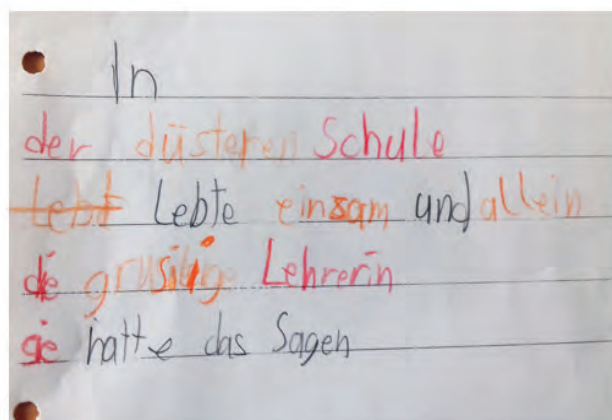 In
der düsteren Schule
Lebt Lebte einsam und allein
die grusilige Lehrerin
sie hatte das Sagen